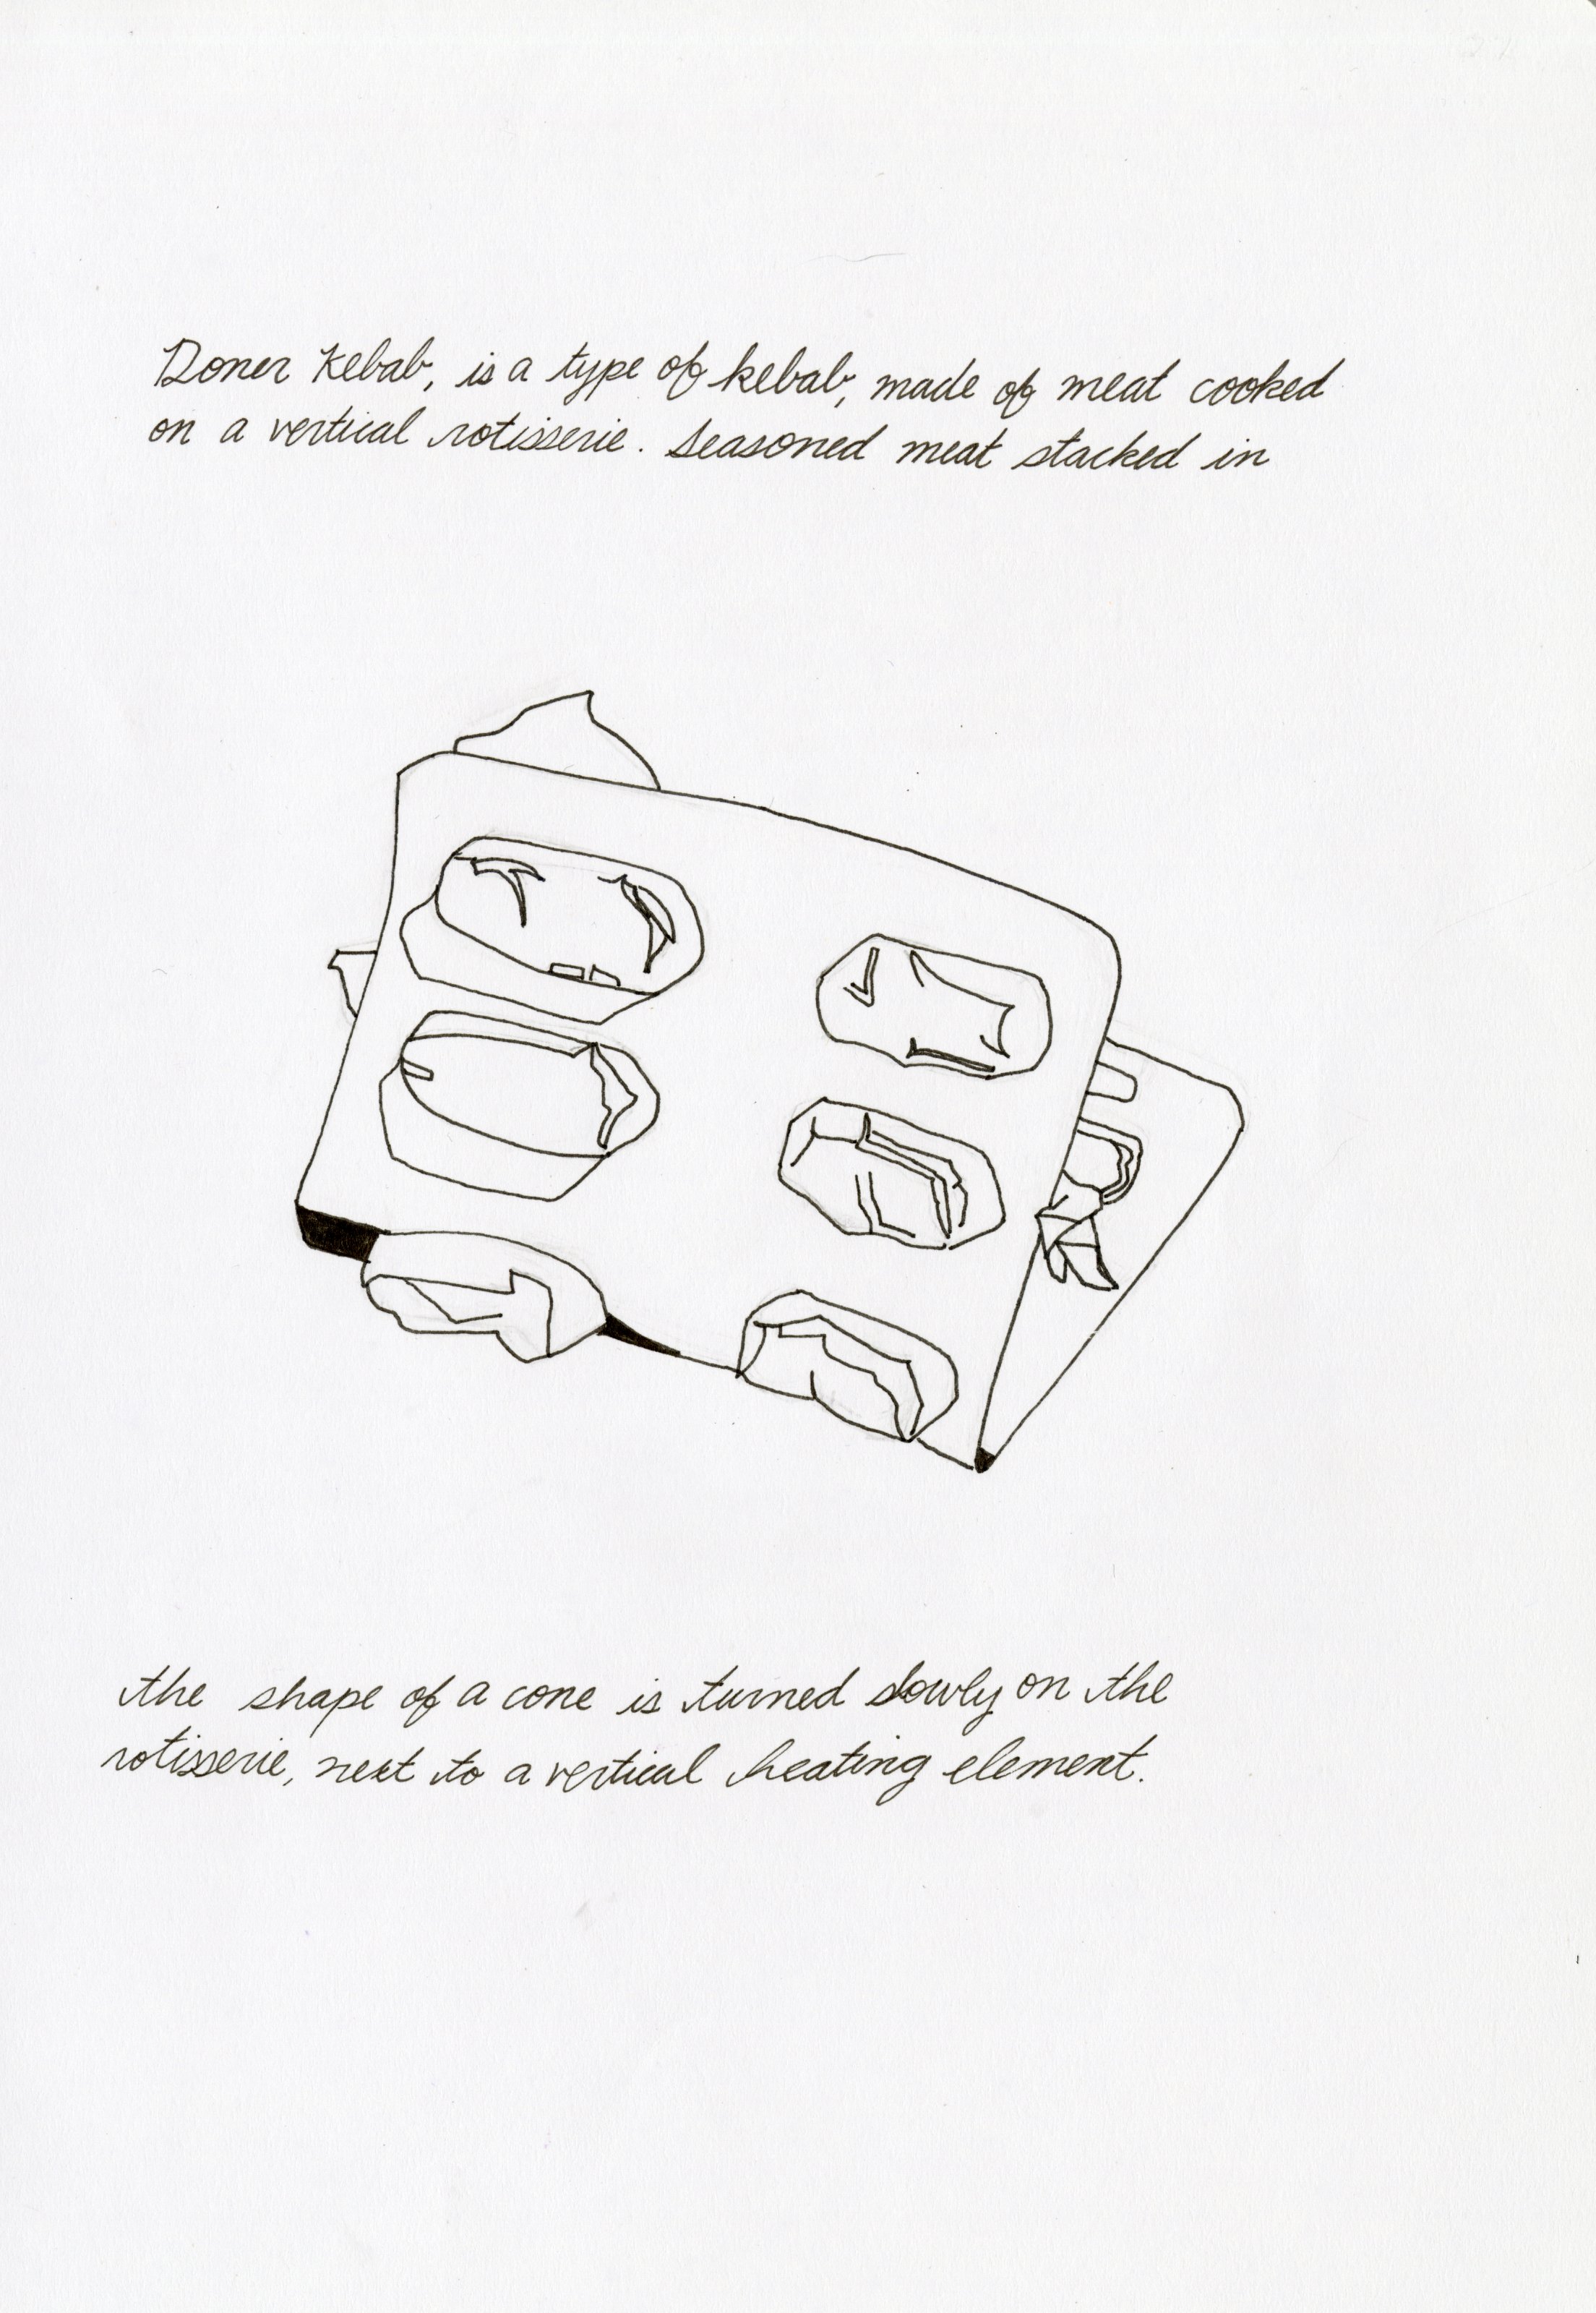 Doner Kebab, is a type of kebab, made of meat cooked
on a vertical rotisserie. Seasoned meat stacked in
the shape of a cone is turned slowly on the
rotisserie, next to a vertical heating element.